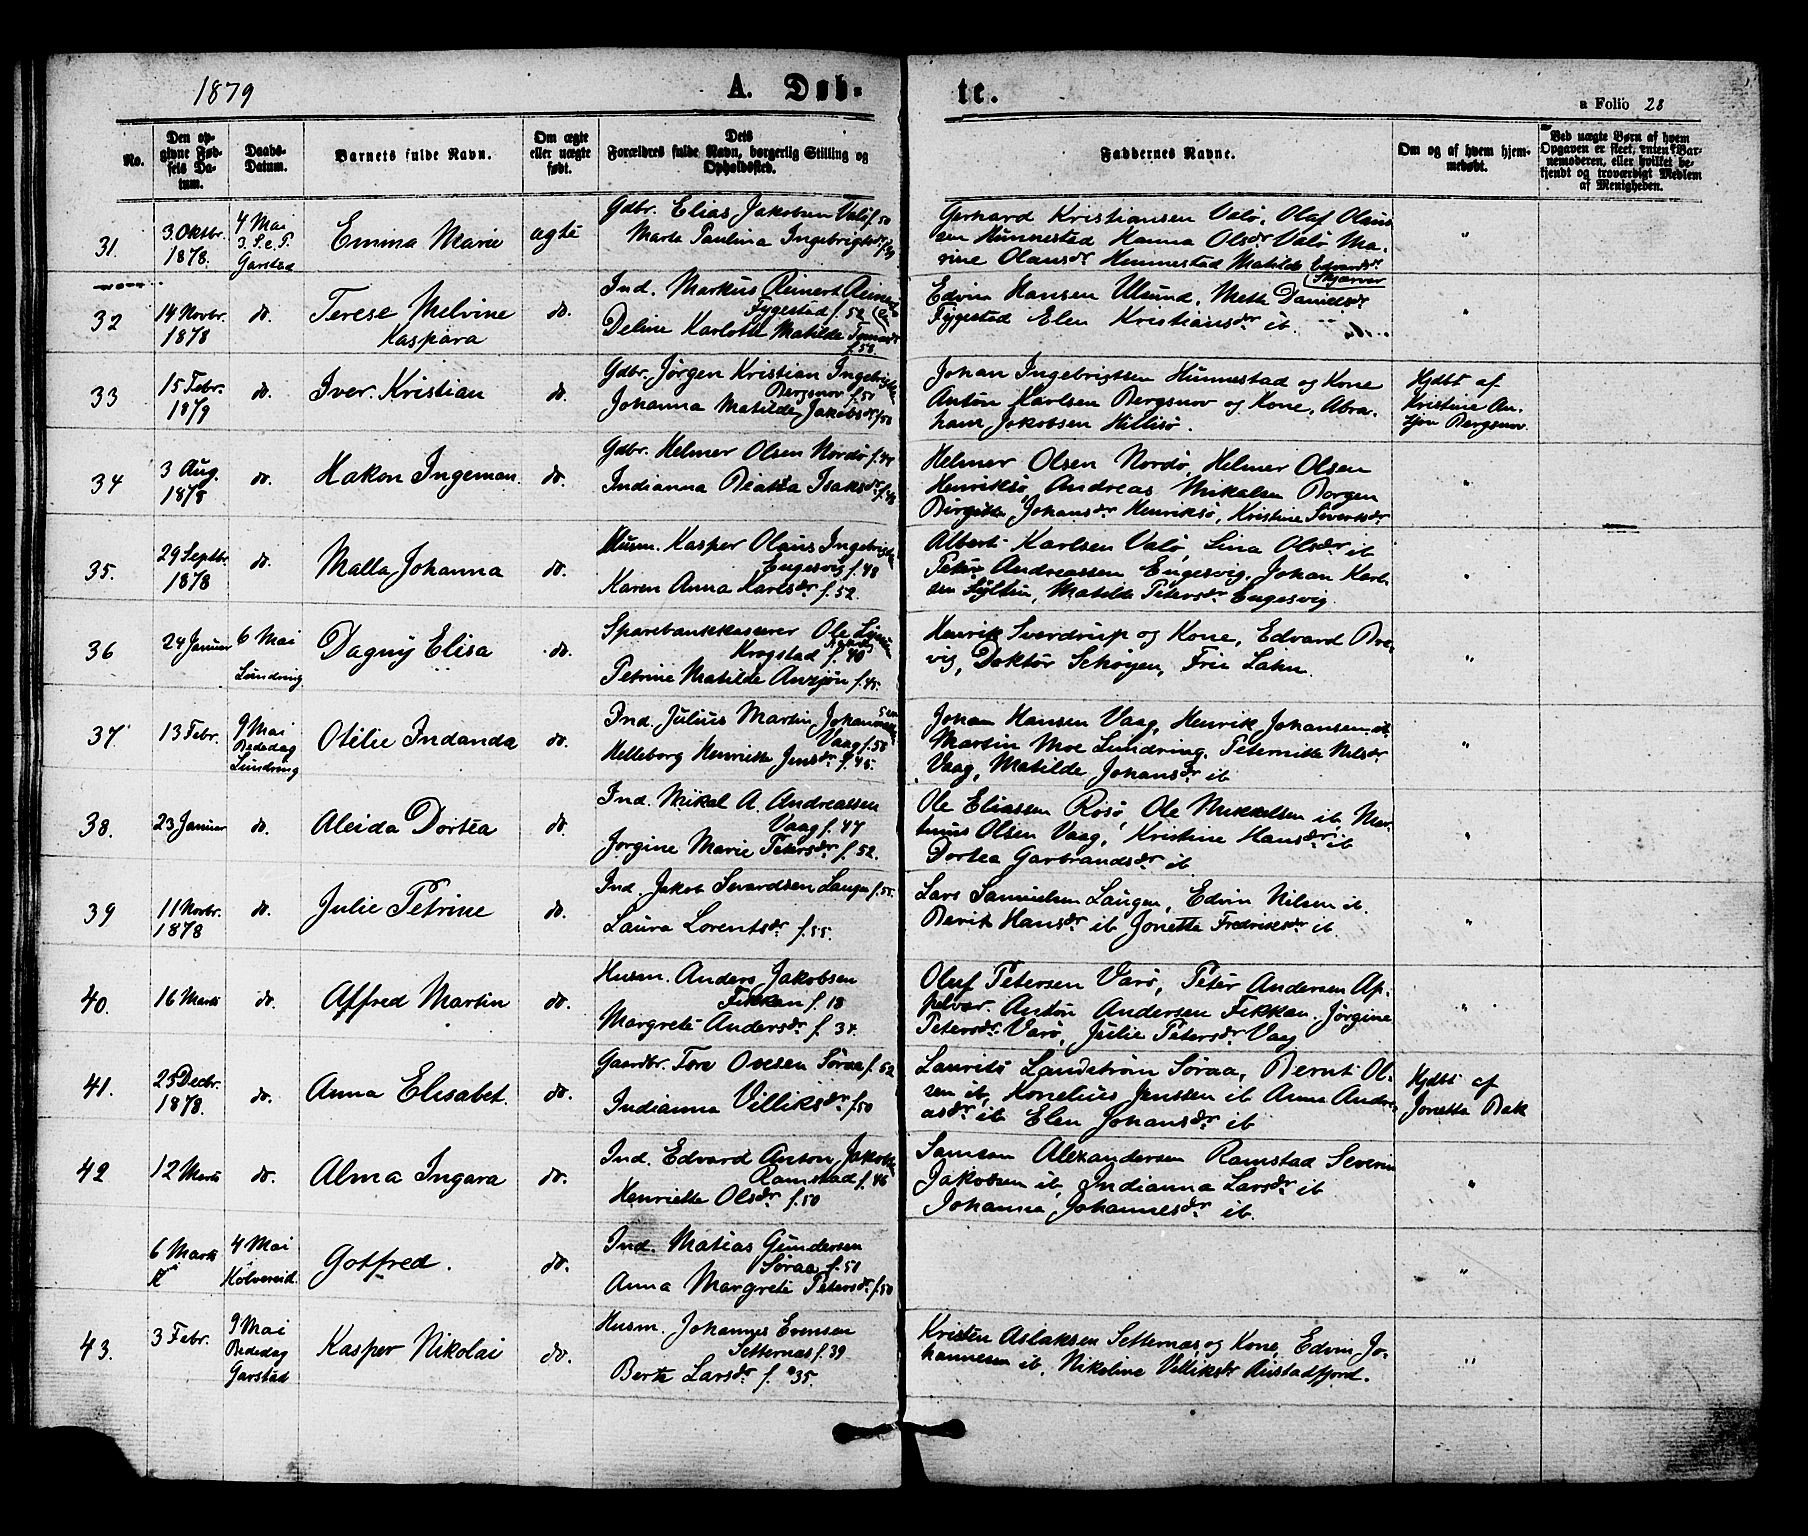 1879
A. Døb-
te.
a Folio 28
No.
Den op-
givne Fød-
sels Da-
tum.
Daabs-
Datum.
Barnets fulde Navn.
Om ægte
eller uægte
født.
Dets
Forældres fulde Navn, borgerlig Stilling og
Opholdssted.
Faddernes Navne.
Om og af hvem hjem-
medøbt.
Ved uægte Børn af hvem
Opgaven er skeet, enten Bar-
nemoderen, eller hvilket be-
kjendt og troværdigt Medlem
af Menigheden.
31
3 Oktbr.
1878.
4 Mai
3. S. e. P.
Garstad
Emma Marie
ægte
Gdbr. Elias Jakobsen Valø f. 50
Marte Paulina Ingebrigtsdr
Gerhard Kristiansen Valø, Olaf Olaus
sen Hunnestad Hanna Olsdr Valø Ma-
rine Olausdr Hunnestad Matilde Edvardsdr
Skjærvør
"
32
14 Novbr.
1878
do.
Terese Melvine
Kaspara
do.
Ind. Markus Reinert
Fygestad f. 52
Deline Karlotte Matilde
f. 58.
Edvin Hansen Ulsund, Mette Danielsdr
Fygestad Elen Kristiansdr ib.
"
33
15 Febr.
1879
do.
Iver Kristian
do.
Gdbr. Jørgen Kristian Ingebrigts
Bergsnov f. 51
Johanna Matilde Jakobsdr f. 50
Johan Ingebrigtsen Hunnestad og Kone
Anton Karlsen Bergsnov og Kone, Abra-
ham Jakobsen Hillisø.
Hjdbt af
Kristine An-
zjøn Bergsnov.
34
3 Aug.
1878
do.
Hakon Ingeman.
do.
Gdbr. Helmer Olsen Nordø f. 44
Indianna Beatta Isaksdr f. 48
Helmer Olsen Nordø, Helmer Olsen
Henriksø, Andreas Mikalsen Borgen
Birgitte Johansdr Henriksø, Kristine Sivertsdr
"
35.
29 Septbr.
1878
do.
Malla Johanna
do.
Husm. Kasper Olaus Ingebrigts
Engesvig f. 48
Karen Anna Karlsdr f. 52.
Albert Karlsen Valø, Lina Olsdr ib
Peter Andreassen Engesvig, Johan Karl-
sen Sylten, Matilde Petersdr Engesvig
"
36
24 Januar
6 Mai
Lundring
Dagny Elisa
do.
Sparebankkasserer Ole
Krogstad f. 40
Petrine Matilde Anzjøn f. 45.
Henrik Sverdrup og Kone, Edvard Bre-
vig, Doktor Schøyen, Frk Lahn.
"
37
13 Febr.
9 Mai
Bededag
Lundring
Otilie Indanda
do.
Ind. Julius Martin Johannessen
Vaag f. 50
Helleborg Henriette Jensdr f. 45.
Johan Hansen Vaag, Henrik Johansen ib
Martin Moe Lundring, Peternille Nilsdr
Vaag, Matilde Johansdr ib
"
38.
23 Januar
do.
Aleida Dortea
do.
Ind. Mikal A. Andreassen
Vaag f. 47
Jørgine Marie Petersdr f. 52.
Ole Eliassen Rosø, Ole Mikkelsen ib Mar-
tinus Olsen Vaag, Kristine Hansdr ib
Dortea Garbrandsdr ib
"
39
11 Novbr.
1878
do.
Julie Petrine
do.
Ind. Jakob Sevardsen Laugen f. 55.
Laura Lorentsdr f. 55.
Lars Samuelsen Laugen, Edvin Nilsen ib.
Berit Hansdr ib Jonetta Fredriksdr ib.
"
40.
16 Marts
do.
Alfred Martin
do.
Husm. Anders Jakobsen
Fikkan f. 18
Margrete Andersdr f. 34.
Oluf Petersen Varø, Peter Andersen Ap-
pelvær. Anton Andersen Fikkan. Jørgine
Petersdr Varø, Julie Petersdr Vaag
"
41.
25 Decbr.
1878.
do.
Anna Elisabet.
do.
Gaardbr. Tore Ovesen Søraa f. 52
Indianna Villiksdr f. 50
Laurits Landstrøm Søraa, Bernt Ol-
sen ib, Kornelius Jenssen ib Anna Andre-
asdr ib Elen Johansdr ib
Hjdbt af
Jonetta Bak
42
12 Marts
do.
Alma Ingara
do.
Ind. Edvard Anton Jakobsen
Ramstad f. 46
Henriette Olsdr f. 50
Samson Alexandersen Ramstad Severin
Jakobsen ib, Indianna Larsdr ib
Johanna Johannesdr ib.
"
6 Marts
4 Mai
Kolvereid.
Gotfred.
do.
Ind. Matias Gundersen
Søraa f. 51
Anna Margrete Petersdr f. 50
"
43.
3 Febr.
9 Mai
Bededag
Garstad
Kasper Nikolai
do.
Husm. Johannes Evensen
Setternæs f. 39
Berte Larsdr f. 35.
Kristen Aslaksen Setternæs og Kone, Edvin Jo-
hannesen ib. Nikoline Villiksdr Austadfjord.
"